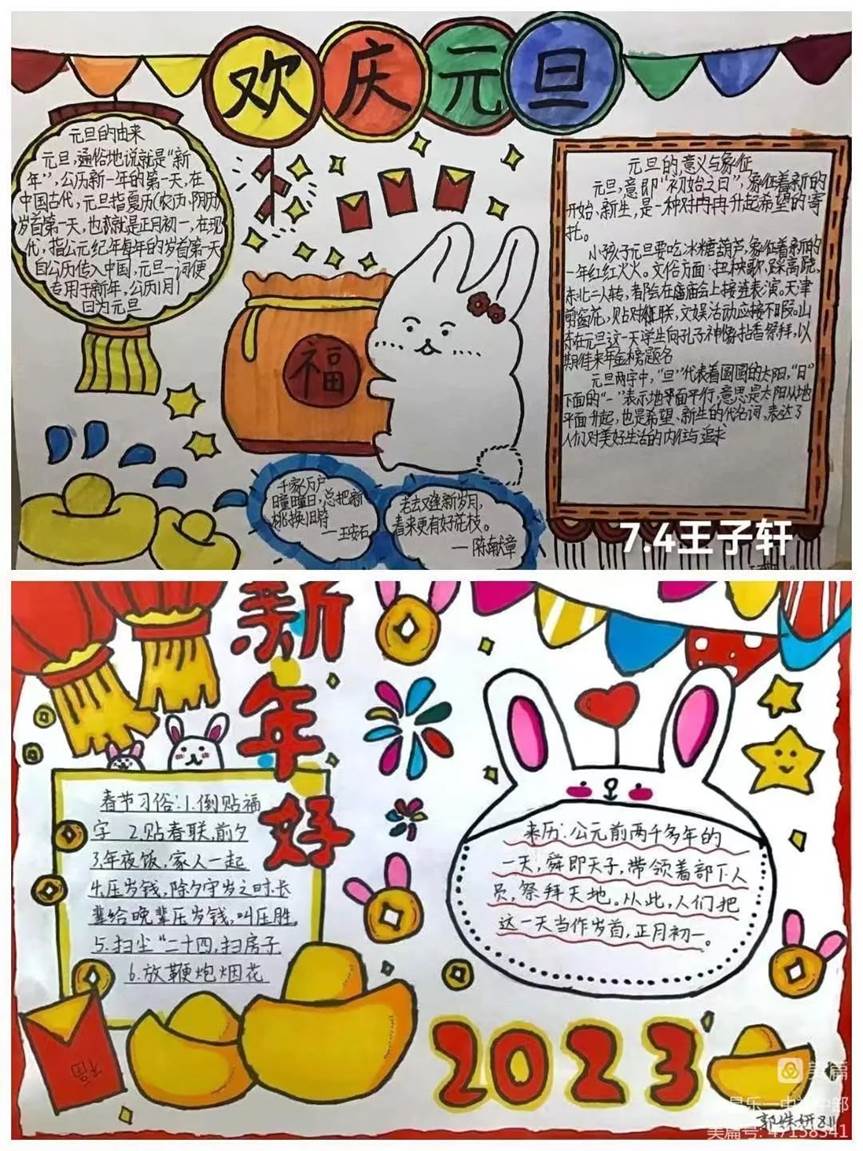 欢庆元旦
元旦的由来
元旦,通俗地说就是“新
年”,公历新一年的第一天,在
中国古代,元旦指夏历(农历,阴历)
岁首第一天,也就是正月初一,在现
代,指公元纪年每年的岁首第一天
自公历传入中国,元旦一词便
专用于新年,公历1月1
日为元旦
福
千家万户
曈曈日,总把新
桃换旧符
—王安石
老去又逢新岁月,
春来更有好花枝。
—陈献章
元旦的意义与象征
元旦,意即“初始之日”,象征着新的
开始、新生,是一种对冉冉升起希望的寄
托。
小孩子元旦要吃冰糖葫芦,象征着新的
一年红红火火。文俗方面:扭秧歌,踩高跷,
东北二人转,都会在庙会上接连表演。天津
剪窗花,贴对联,文娱活动应接不暇。山
东在元旦这一天学生向孔子神像拈香祭拜,以
期待来年金榜题名
元旦两字中,“旦”代表着圆圆的太阳,“日”
下面的“一”表示地平面平行,意思是太阳从地
平面升起,也是希望、新生的代名词,表达了
人们对美好生活的向往与追求
7.4王子轩
新年好
春节习俗:1.倒贴福
字 2.贴春联,前夕
3.年夜饭,家人一起
4.压岁钱,除夕守岁之时,长
辈给晚辈压岁钱,叫压胜
5.扫尘“二十四,扫房子
6.放鞭炮烟花
福
来历:公元前两千多年的
一天,舜即天子,带领着部下人
员,祭拜天地。从此,人们把
这一天当作岁首,正月初一。
2023
美篇
昌乐一中初中部
郭姝妍811
美篇号: 47138341